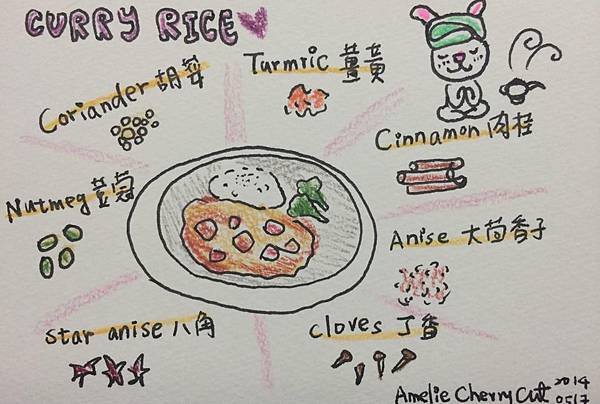 CURRY RICE
Turmric 薑黃
Coriander 胡荽
Cinnamon 肉桂
Nutmeg 荳蔻
Anise 大茴香子
Star anise 八角
Cloves 丁香
Amelie Cherry Cut 2014
0517